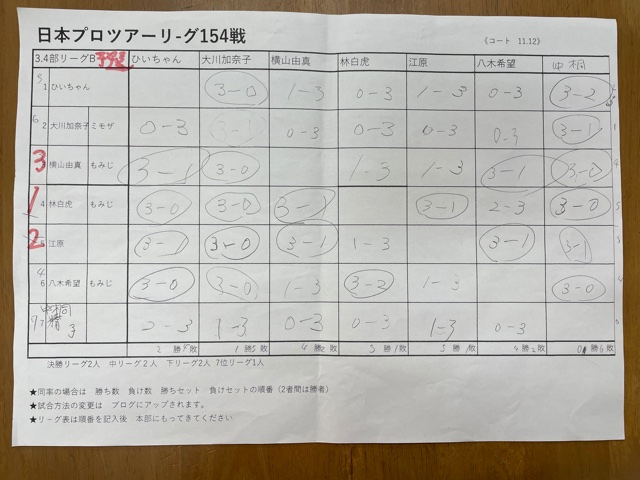 日本プロツアーリ-グ154戦
《コート 11.12》
3.4部リーグB 予選 ひいちゃん 大川加奈子 横山由真 林白虎 江原 八木希望 中桐
5 1 ひいちゃん 3-0 1-3 0-3 1-3 0-3 3-2
6 2 大川加奈子 ミモザ 0-3 0-3 0-3 0-3 0-3 3-1 1
3 横山由真 もみじ 3-1 3-0 1-3 1-3 3-1 3-0 4
1 4 林白虎 もみじ 3-0 3-0 3-1 3-1 2-3 3-0 5
2 5 江原 3-1 3-0 3-1 1-3 3-1 3-1 5
4 6 八木希望 もみじ 3-0 3-0 1-3 3-2 1-3 3-0 4
7 7 中桐 2-3 1-3 0-3 0-3 1-3 0-3 0
2勝4敗 1勝5敗 4勝2敗 5勝1敗 5勝1敗 4勝2敗 0勝6敗
決勝リーグ2人 中リーグ2人 下リーグ2人 7位リーグ1人
★同率の場合は 勝ち数 負け数 勝ちセット 負けセットの順番(2者間は勝者)
★試合方法の変更は ブログにアップされます。
★リーグ表は順番を記入後 本部にもってきてください